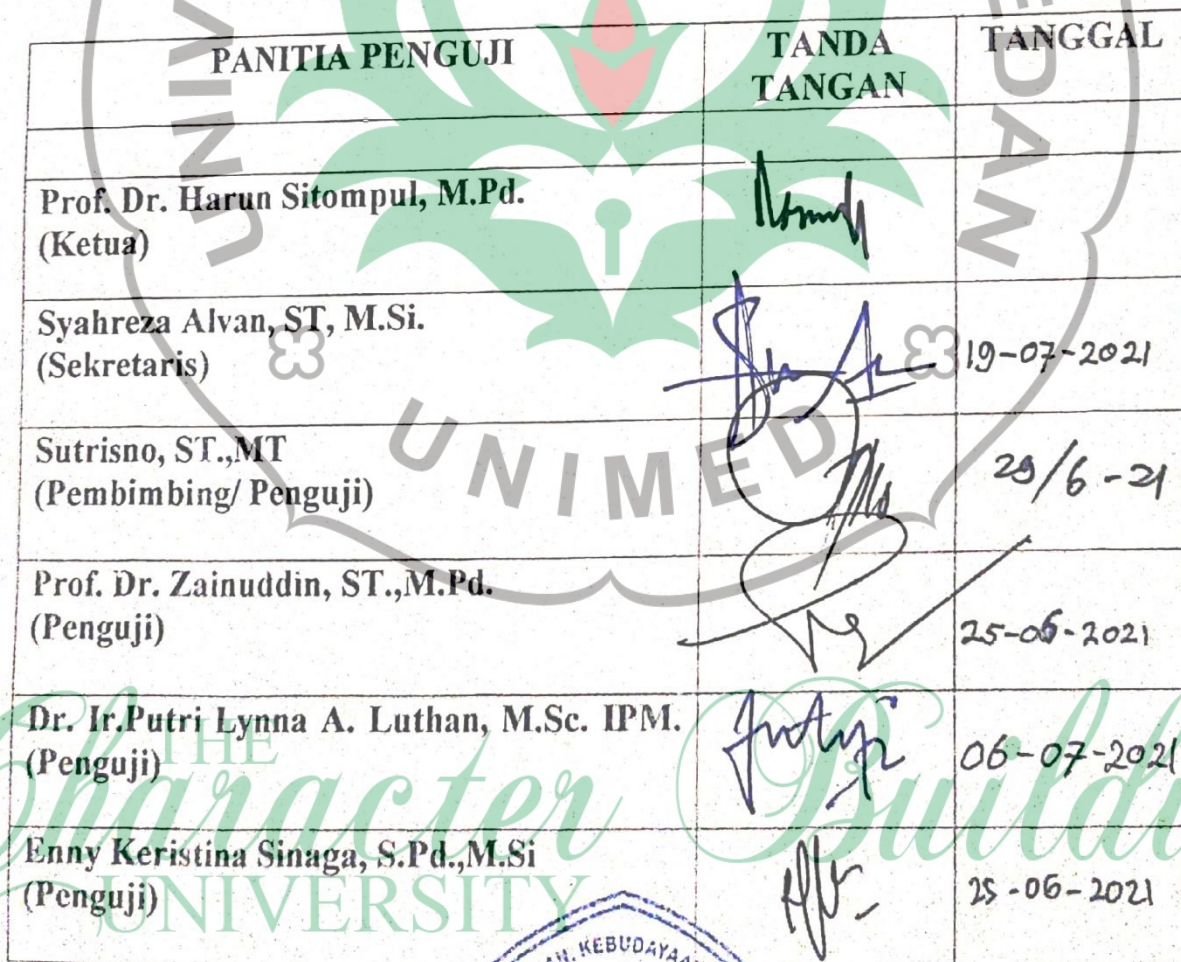 PANITIA PENGUJI
TANDA
TANGAN
TANGGAL
Prof. Dr. Harun Sitompul, M.Pd.
(Ketua)
Syahreza Alvan, ST, M.Si.
(Sekretaris)
19-07-2021
Sutrisno, ST.,MT
(Pembimbing/ Penguji)
29/6-21
Prof. Dr. Zainuddin, ST.,M.Pd.
(Penguji)
25-06-2021
Dr. Ir.Putri Lynna A. Luthan, M.Sc. IPM.
(Penguji)
06-07-2021
Enny Keristina Sinaga, S.Pd.,M.Si
(Penguji)
25-06-2021
UNIMED
THE
Character Buildi
UNIVERSITY
KEBUDAYAAN